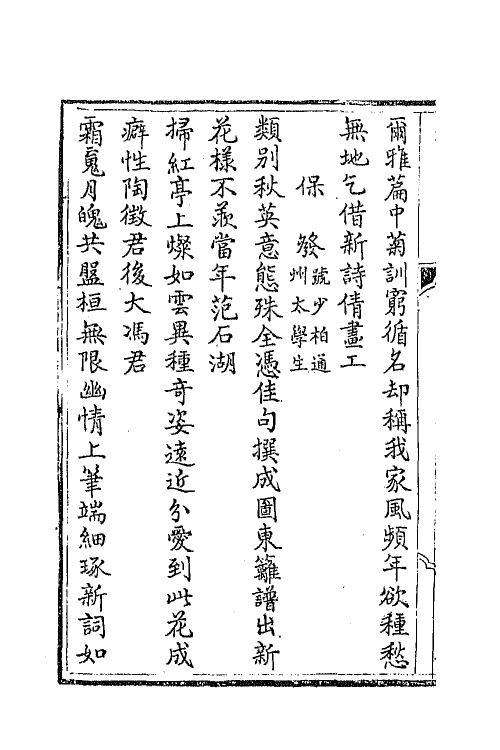 爾雅篇中菊訓窮循名却稱我家風頻年欲種愁
無地乞借新詩倩畫工
保發號少柏通
州太學生
類别秋英意態殊全憑佳句撰成圖東籬譜出新
花樣不羨當年范石湖
掃紅亭上燦如雲異種奇姿遠近分愛到此花成
癖性陶徵君後大馮君
霜䰟月魄共盤桓無限幽情上筆端細琢新詞如